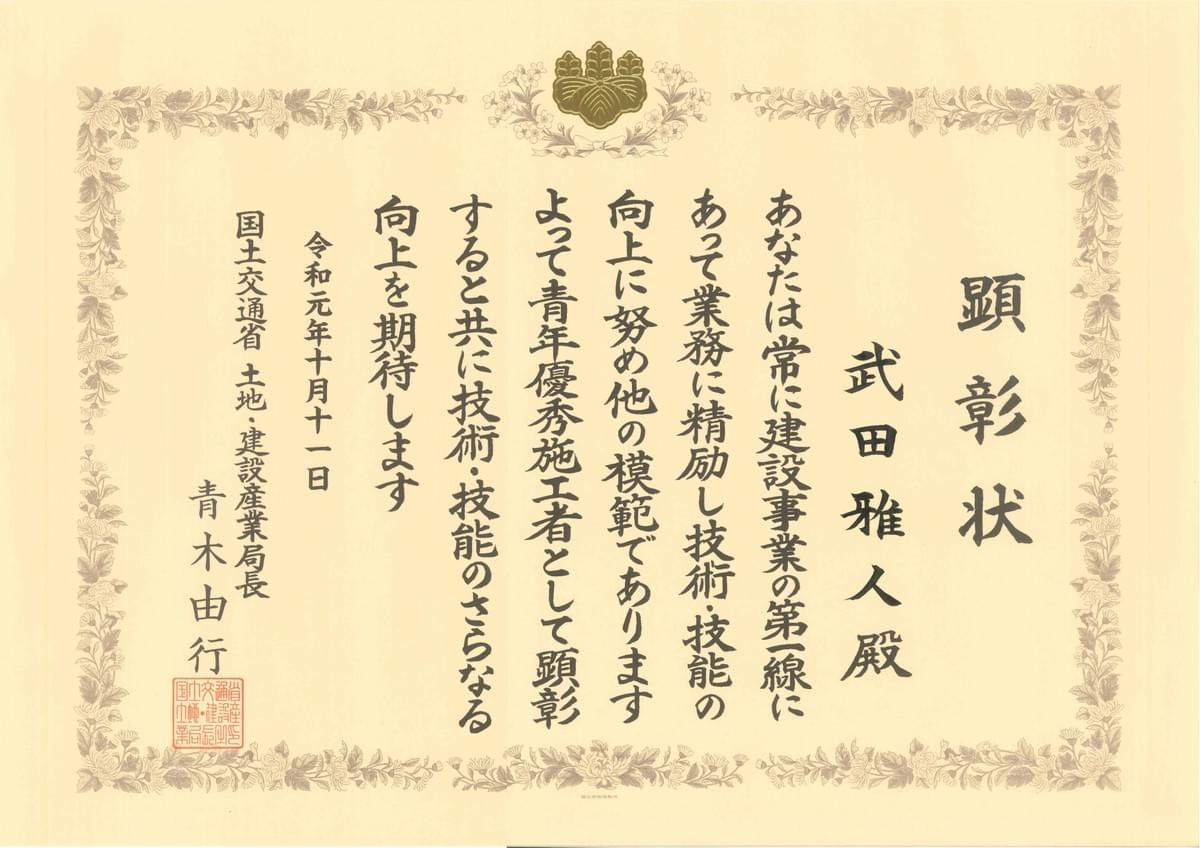 顕彰状
武田雅人殿
あなたは常に建設事業の第一線に
あって業務に精励し技術・技能の
向上に努め他の模範であります
よって青年優秀施工者として顕彰
すると共に技術・技能のさらなる
向上を期待します
令和元年十月十一日
国土交通省 土地・建設産業局長
青木由行